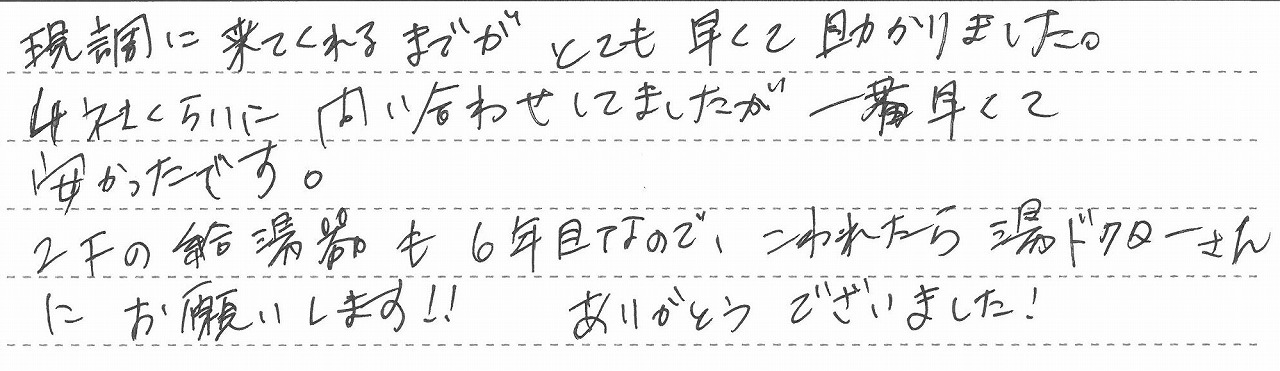 現調に来てくれるまでが とても早くて助かりました。
4社くらいに問い合わせしてましたが一番早くて
安かったです。
2Fの給湯器も6年目なので、こわれたら湯ドクターさん
にお願いします!! ありがとうございました!